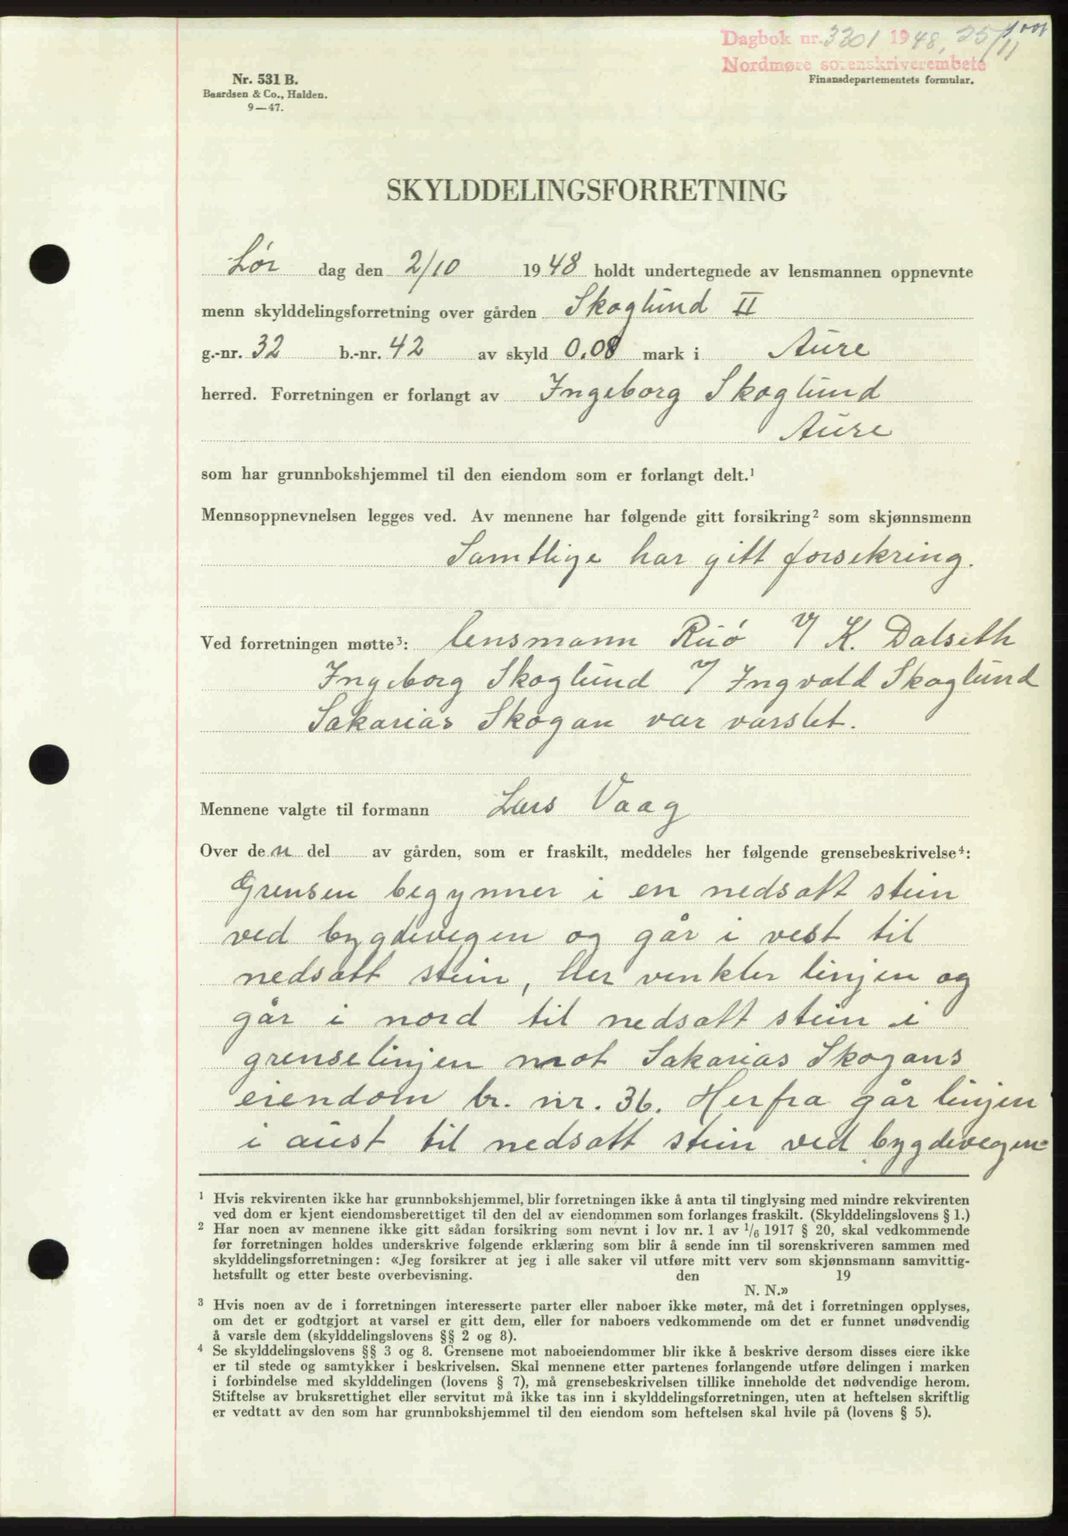 1001
Dagbok nr. 3301 1948, 25/11
Nordmøre sorenskriverembete
Nr. 531 B.
Baardsen & Co., Halden.
9—47.
Finansdepartementets formular.
SKYLDDELINGSFORRETNING
Lør dag den 2/10 1948 holdt undertegnede av lensmannen oppnevnte
menn skylddelingsforretning over gården Skoglund II
g.-nr. 32 b.-nr. 42 av skyld 0.08 mark i Aure
herred. Forretningen er forlangt av Ingeborg Skoglund
Aure
som har grunnbokshjemmel til den eiendom som er forlangt delt.¹
Mennsoppnevnelsen legges ved. Av mennene har følgende gitt forsikring² som skjønnsmenn
Samtlige har gitt forsekring.
Ved forretningen møtte³: lensmann Ruø v/ K. Dalseth
Ingeborg Skoglund v/ Ingvald Skoglund
Sakarias Skogan var varslet.
Mennene valgte til formann Lars Vaag
Over den del av gården, som er fraskilt, meddeles her følgende grensebeskrivelse⁴:
Grensen begynner i en nedsatt stein
ved bygdevegen og går i vest til
nedsatt stein, her vinkler linjen og
går i nord til nedsatt stein i
grenselinjen mot Sakarias Skogans
eiendom br. nr. 36. Herfra går linjen
i aust til nedsatt stein ved bygdevegen
¹ Hvis rekvirenten ikke har grunnbokshjemmel, blir forretningen ikke å anta til tinglysing med mindre rekvirenten
ved dom er kjent eiendomsberettiget til den del av eiendommen som forlanges fraskilt. (Skylddelingslovens § 1.)
² Har noen av mennene ikke gitt sådan forsikring som nevnt i lov nr. 1 av 1/6 1917 § 20, skal vedkommende
før forretningen holdes underskrive følgende erklæring som blir å sende inn til sorenskriveren sammen med
skylddelingsforretningen: «Jeg forsikrer at jeg i alle saker vil utføre mitt verv som skjønnsmann samvittig-
hetsfullt og etter beste overbevisning. den 19
N. N.»
³ Hvis noen av de i forretningen interesserte parter eller naboer ikke møter, må det i forretningen opplyses,
om det er godtgjort at varsel er gitt dem, eller for naboers vedkommende om det er funnet unødvendig
å varsle dem (skylddelingslovens §§ 2 og 8).
⁴ Se skylddelingslovens §§ 3 og 8. Grensene mot naboeiendommer blir ikke å beskrive dersom disses eiere ikke
er til stede og samtykker i beskrivelsen. Skal mennene etter partenes forlangende utføre delingen i marken
i forbindelse med skylddelingen (lovens § 7), må grensebeskrivelsen tillike inneholde det nødvendige herom.
Stiftelse av bruksrettighet eller servitut må ikke tas inn i skylddelingsforretningen, uten at heftelsen skriftlig
er vedtatt av den som har grunnbokshjemmel til den eiendom som heftelsen skal hvile på (lovens § 5).